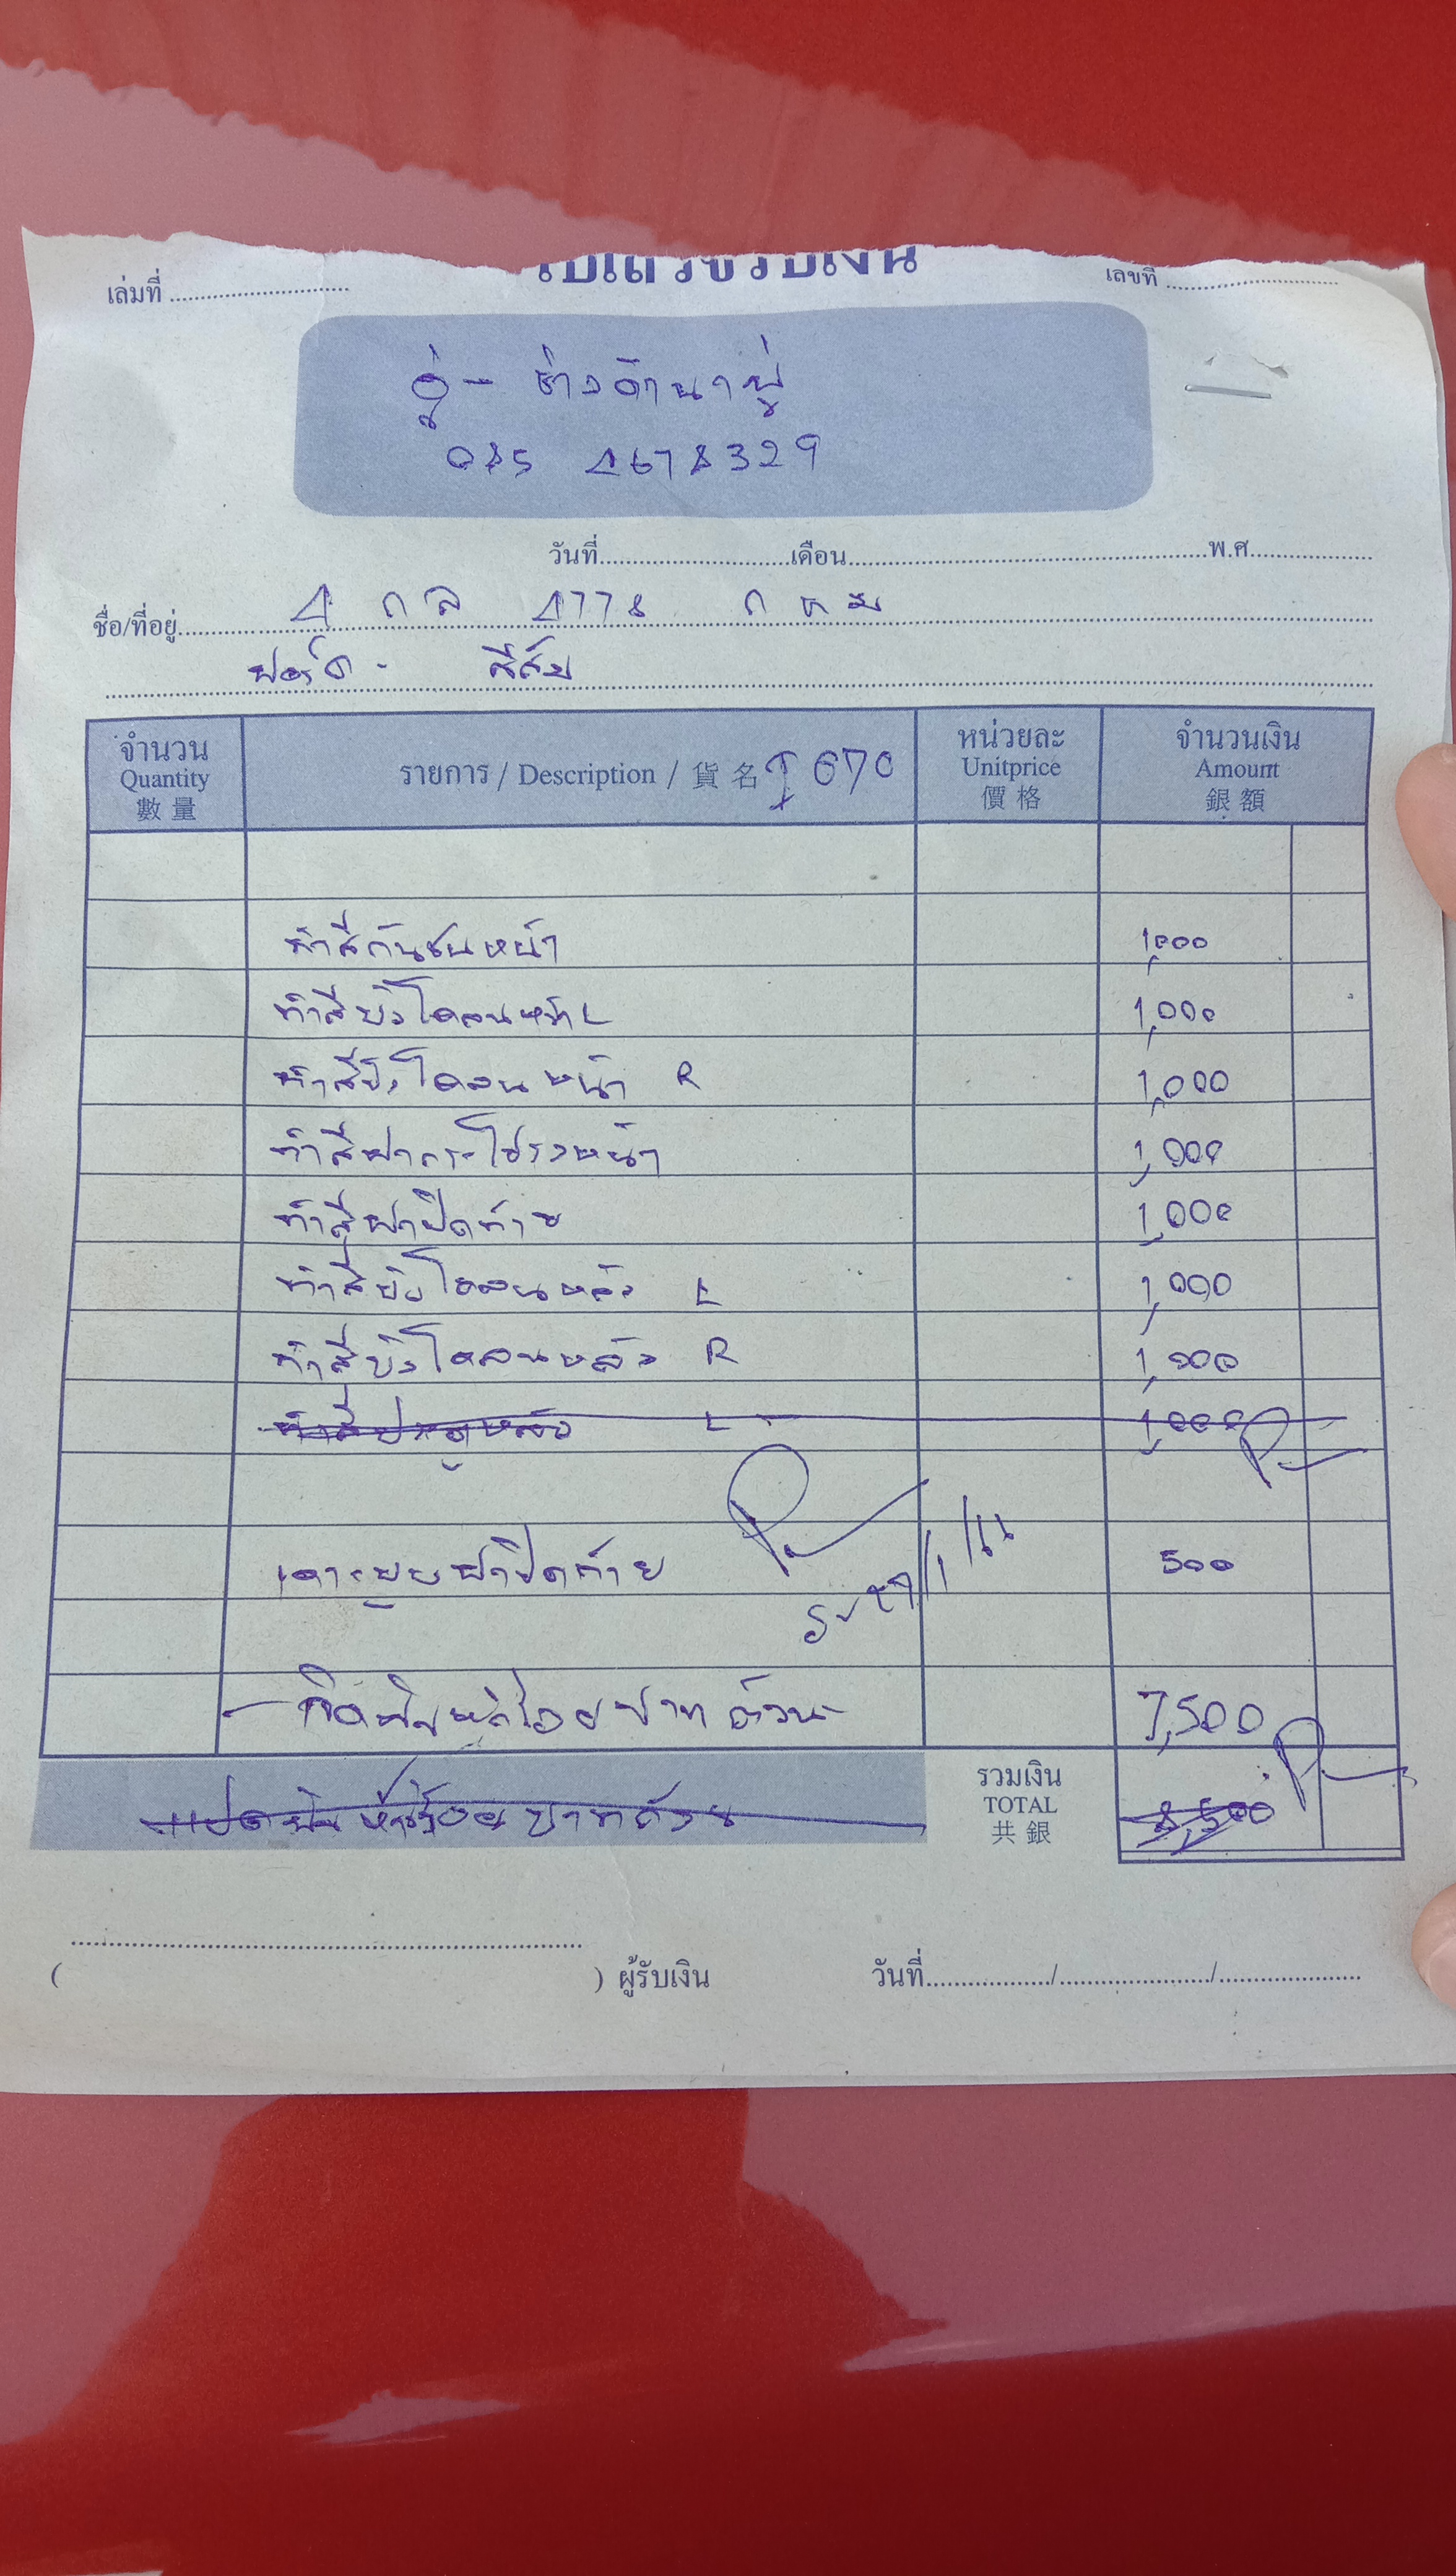 ใบเสร็จรับเงิน
เล่มที่ เลขที่
อู่ - ช่าง
085 4678329
วันที่ เดือน พ.ศ.
ชื่อ/ที่อยู่ 4 กล 4778 กทม
ฟอร์ด - สีส้ม
จำนวน รายการ / Description / 貨名 หน่วยละ จำนวนเงิน
Quantity 670 Unitprice Amount
數量 價格 銀額
ทำสีกันชนหน้า 1,000
ทำสีบังโคลนหน้า L 1,000
ทำสีบังโคลนหน้า R 1,000
ทำสีฝากระโปรงหน้า 1,000
ทำสีฝาปิดท้าย 1,000
ทำสีบังโคลนหลัง L 1,000
ทำสีบังโคลนหลัง R 1,000
ทำสีประตูหลัง L 1,000
เคาะพ่นฝาปิดท้าย 500
- เจ็ดพันห้าร้อยบาทถ้วน - 7,500
แปดพันห้าร้อยบาทถ้วน รวมเงิน 8,500
TOTAL
共銀
( ) ผู้รับเงิน วันที่ / /